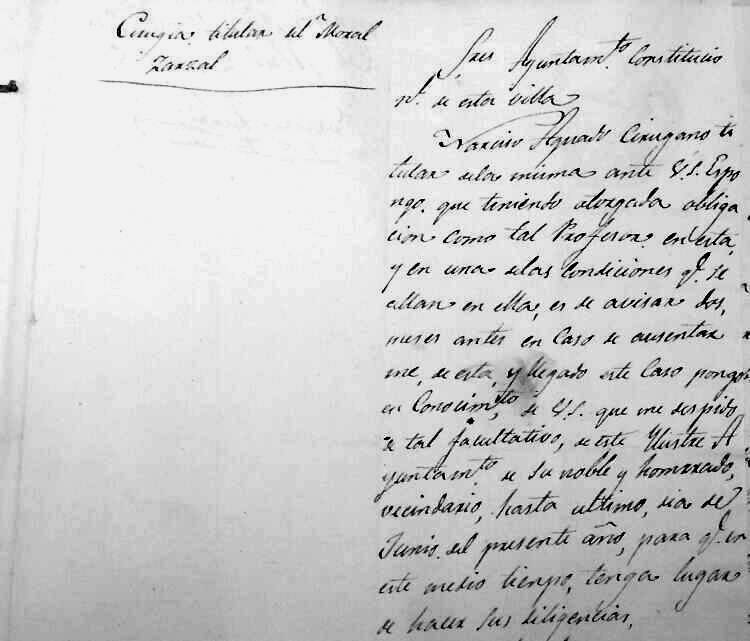 Cirugia titular del Moral
Zarzal
Sres Ayuntamto. Constitucio
nl. de esta villa
Narciso Aguado Cirugano ti
tular dela misma ante V.S. Espo
ngo. que teniendo otorgada obliga
cion como tal Profesor en esta,
y en una delas Condiciones qe. se
allan en ella, es de avisar dos,
meses antes en Caso de ausentar
me, de esta, y llegado este Caso pongo
en Conocimto, de V.S. que me despido
de tal facultativo, de este Ilustre A
yuntamto. de su noble y honrrado,
vecindario, hasta ultimo, dia de
Junio del presente año, para qe. en
este medio tiempo, tenga lugar
de hacer sus diligencias,